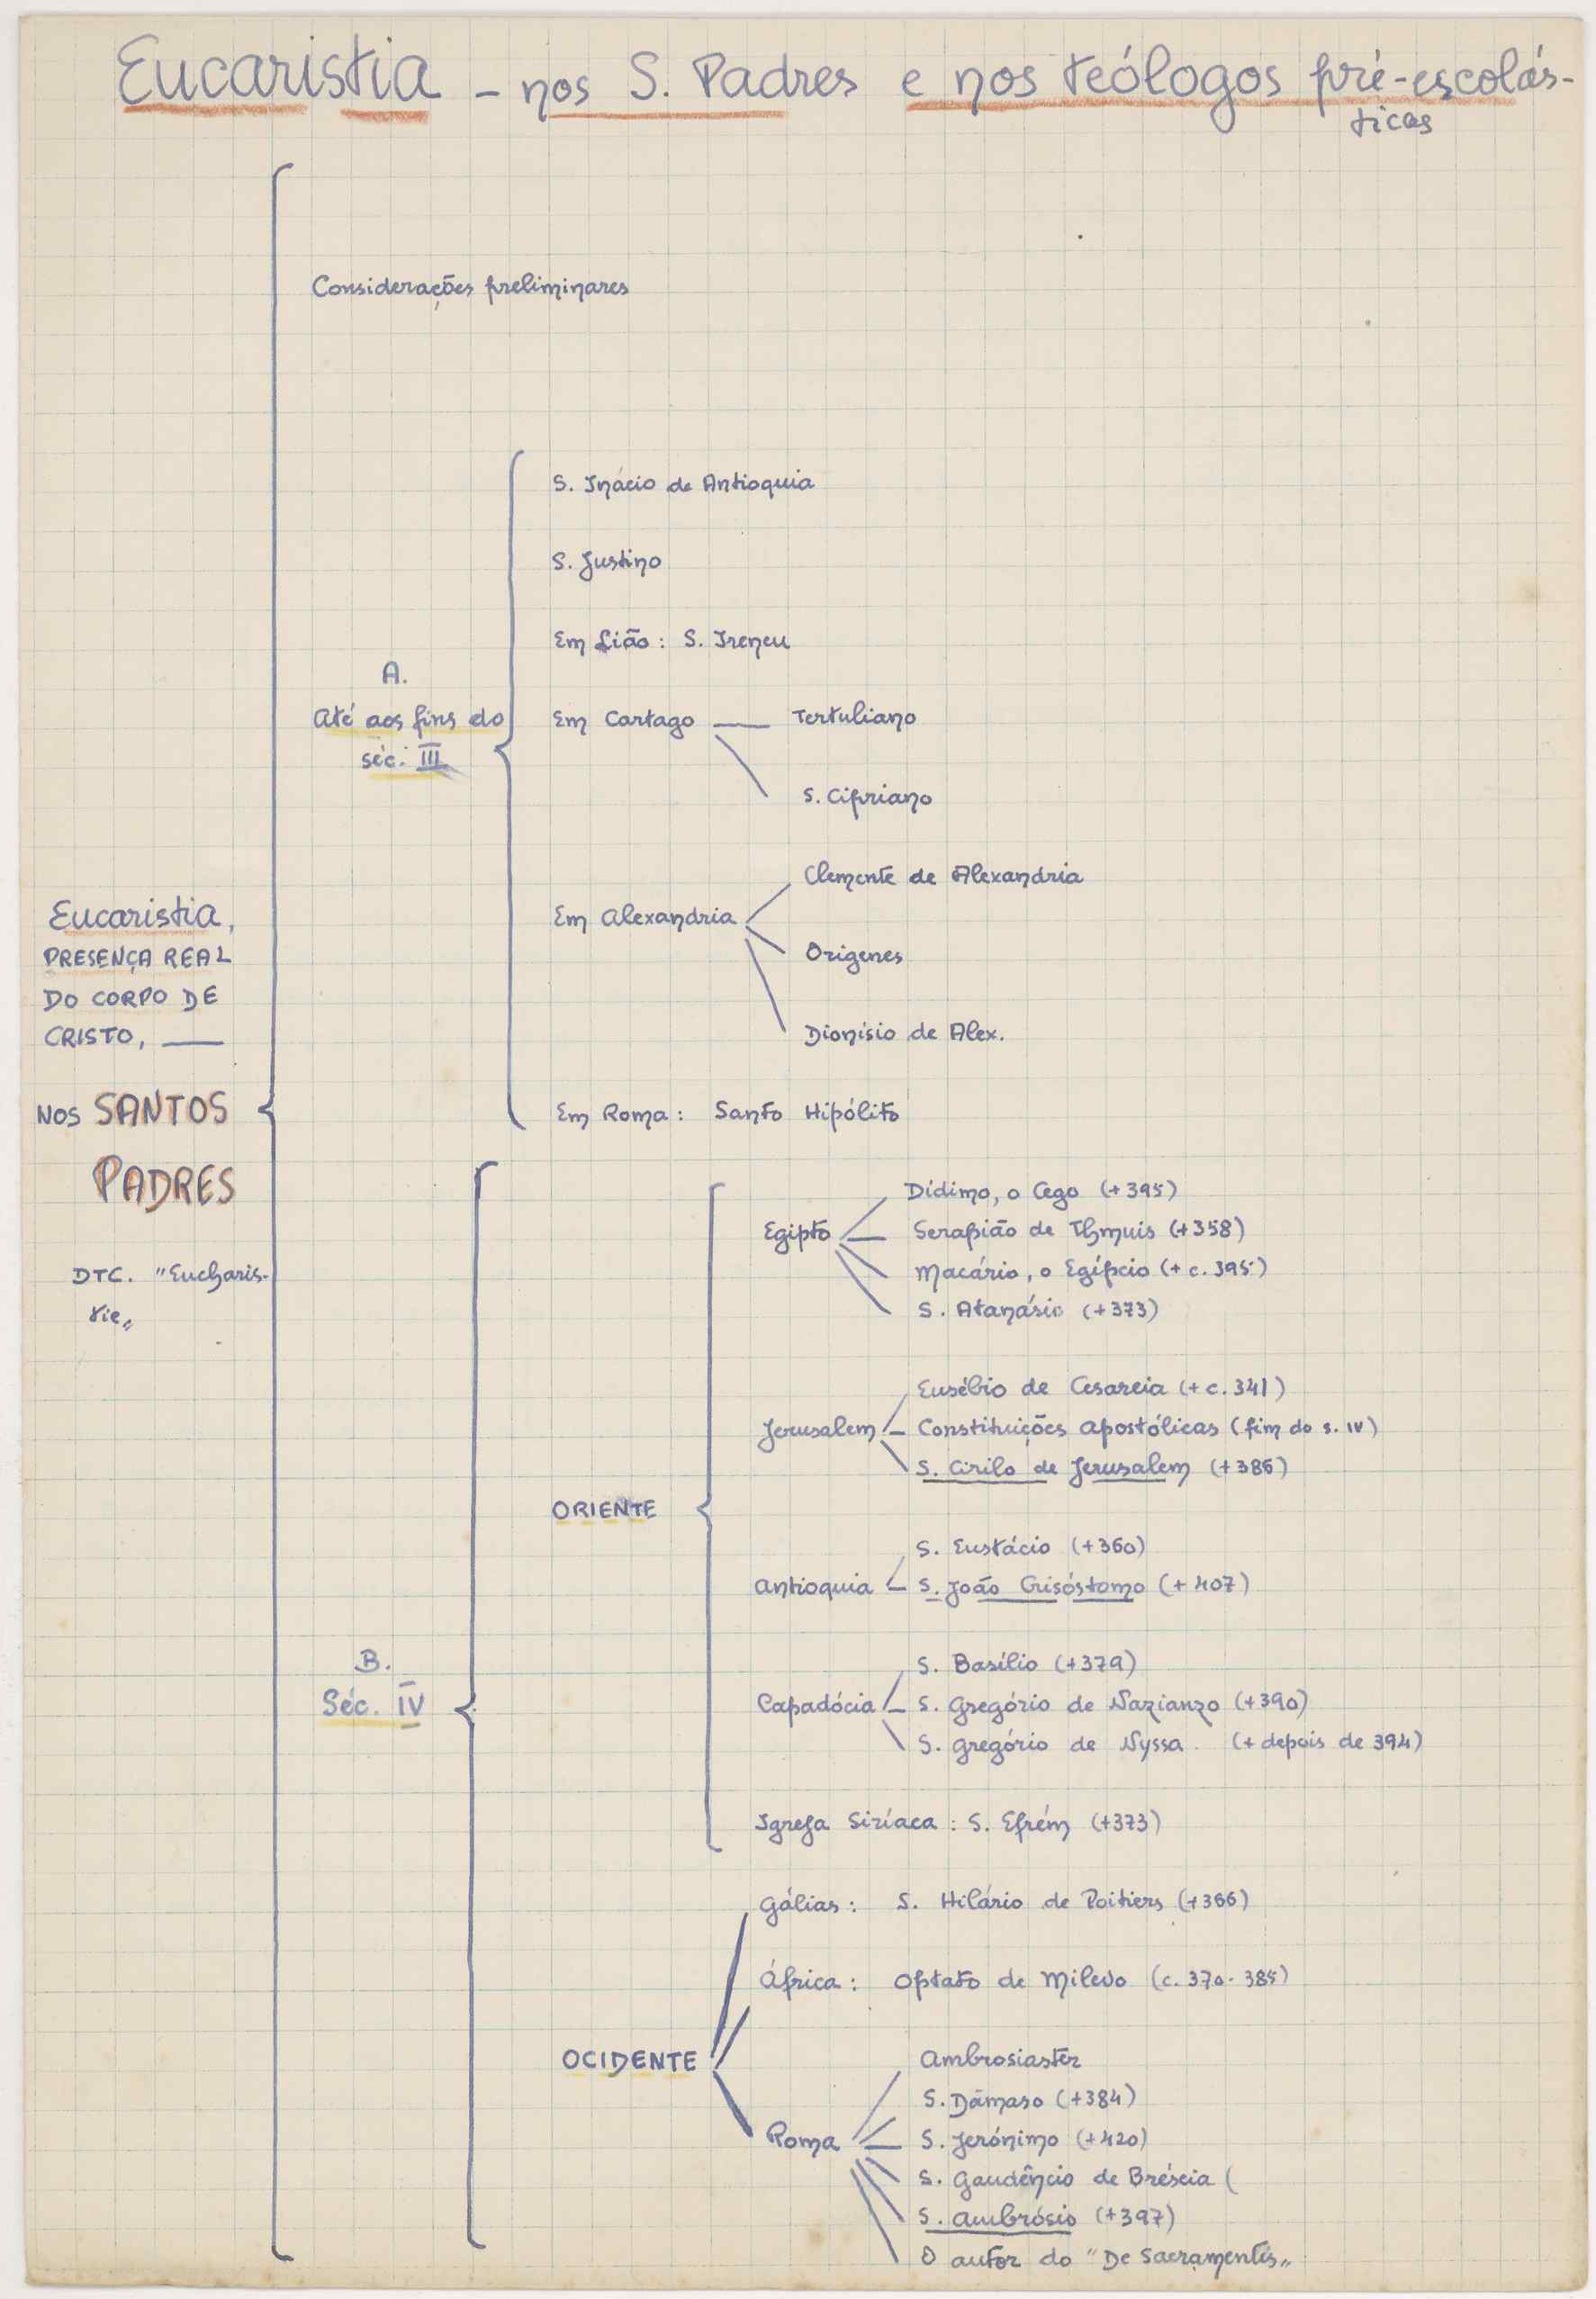 Eucaristia - nos S. Padres e nos teólogos pré-escolás-
ticos
Considerações preliminares
Eucaristia,
PRESENÇA REAL
DO CORPO DE
CRISTO, —
NOS SANTOS
PADRES
DTC. "Eucharis-
tie"
A.
Até aos fins do
séc. III
S. Inácio de Antioquia
S. Justino
Em Lião: S. Ireneu
Em Cartago — Tertuliano
S. Cipriano
Em Alexandria
Clemente de Alexandria
Origenes
Dionísio de Alex.
Em Roma: Santo Hipólito
B.
Séc. IV
ORIENTE
Egipto
Dídimo, o Cego (+395)
Serapião de Thmuis (+358)
Macário, o Egípcio (+ c. 395)
S. Atanásio (+373)
Jerusalem
Eusébio de Cesareia (+ c. 341)
Constituições Apostólicas (fim do s. IV)
S. Cirilo de Jerusalem (+386)
Antioquia
S. Eustácio (+360)
S. João Crisóstomo (+ 407)
Capadócia
S. Basílio (+379)
S. Gregório de Nazianzo (+390)
S. Gregório de Nyssa (+ depois de 394)
Igreja Siríaca: S. Efrém (+373)
OCIDENTE
Gálias: S. Hilário de Poitiers (+366)
África: Optato de Milevo (c. 370-385)
Roma
Ambrosiaster
S. Dâmaso (+384)
S. Jerónimo (+420)
S. Gaudêncio de Bréscia (
S. Ambrósio (+397)
O autor do "De Sacramentis"